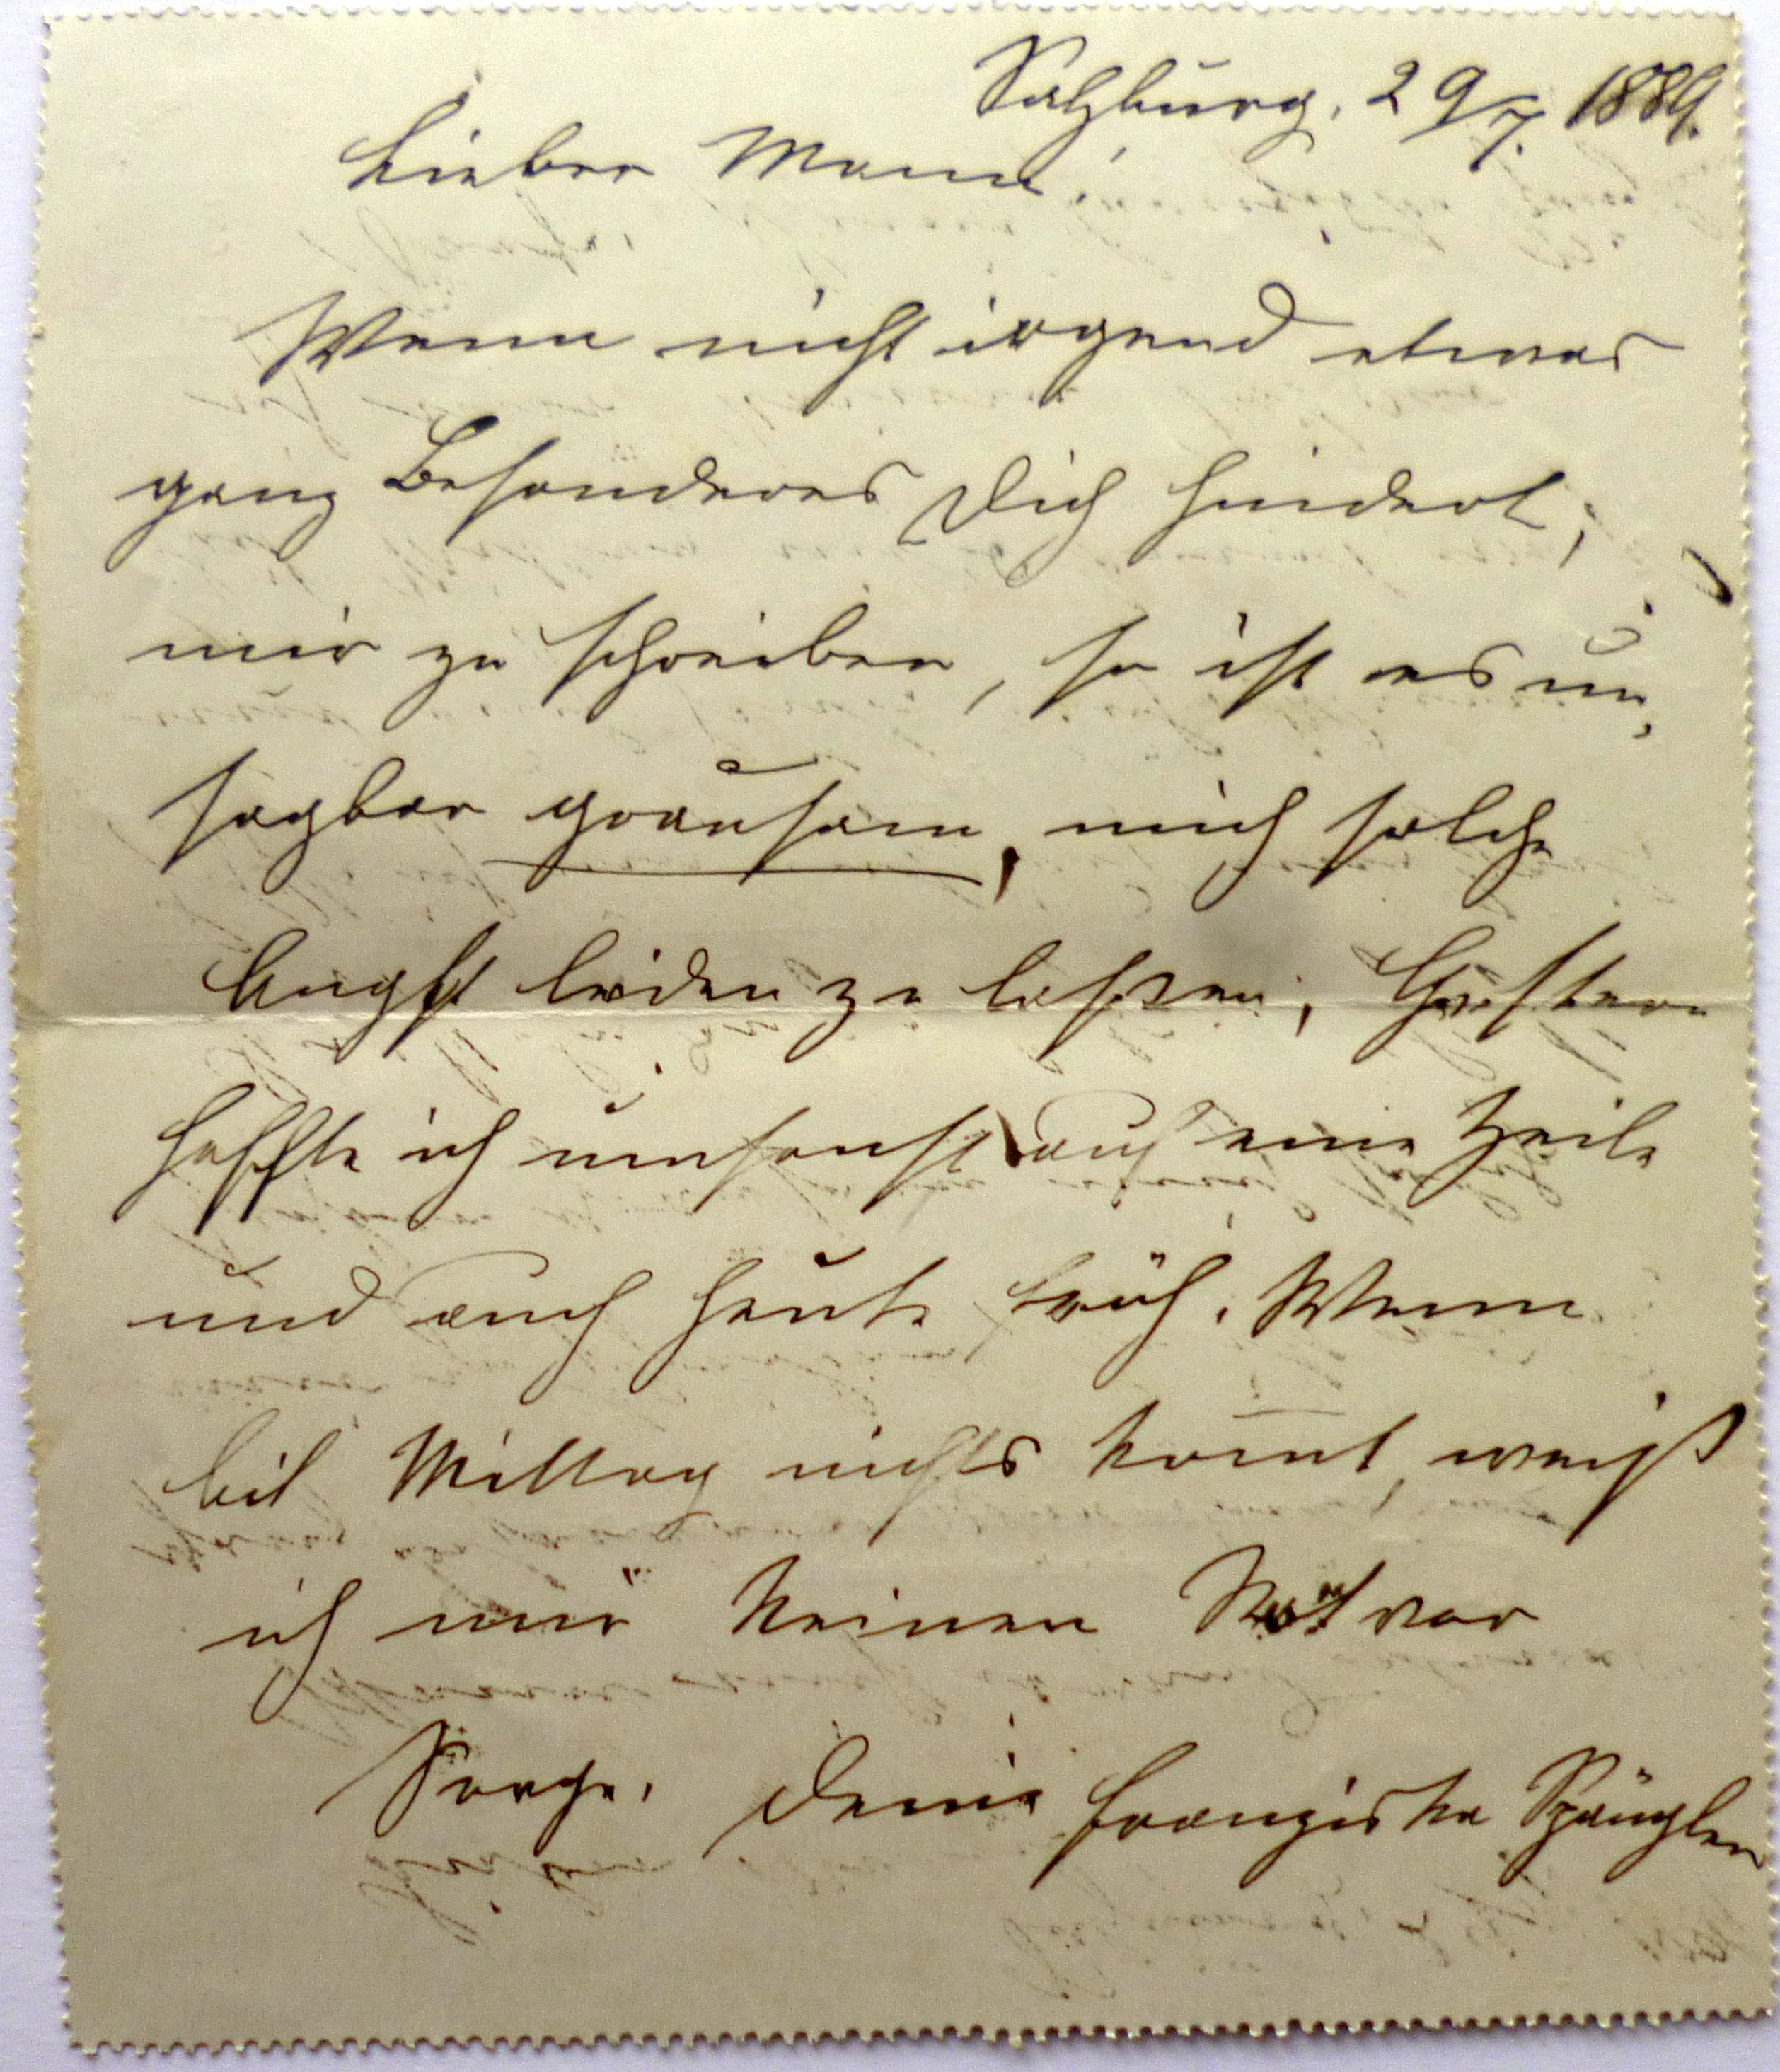 Salzburg, 29/7. 1889.
Lieber Mann!
Wenn nicht irgend etwas
ganz Besonderes Dich hindert,
mir zu schreiben, so ist es un-
sagbar grausam, mich solche
Angst leiden zu lassen. Gestern
hoffte ich umsonst auf eine Zeile
und auch heute früh. Wenn
bis Mittag nichts kom̄t, weiß
ich mir keinen Rat vor
Sorge. Deine Franziska Spängler